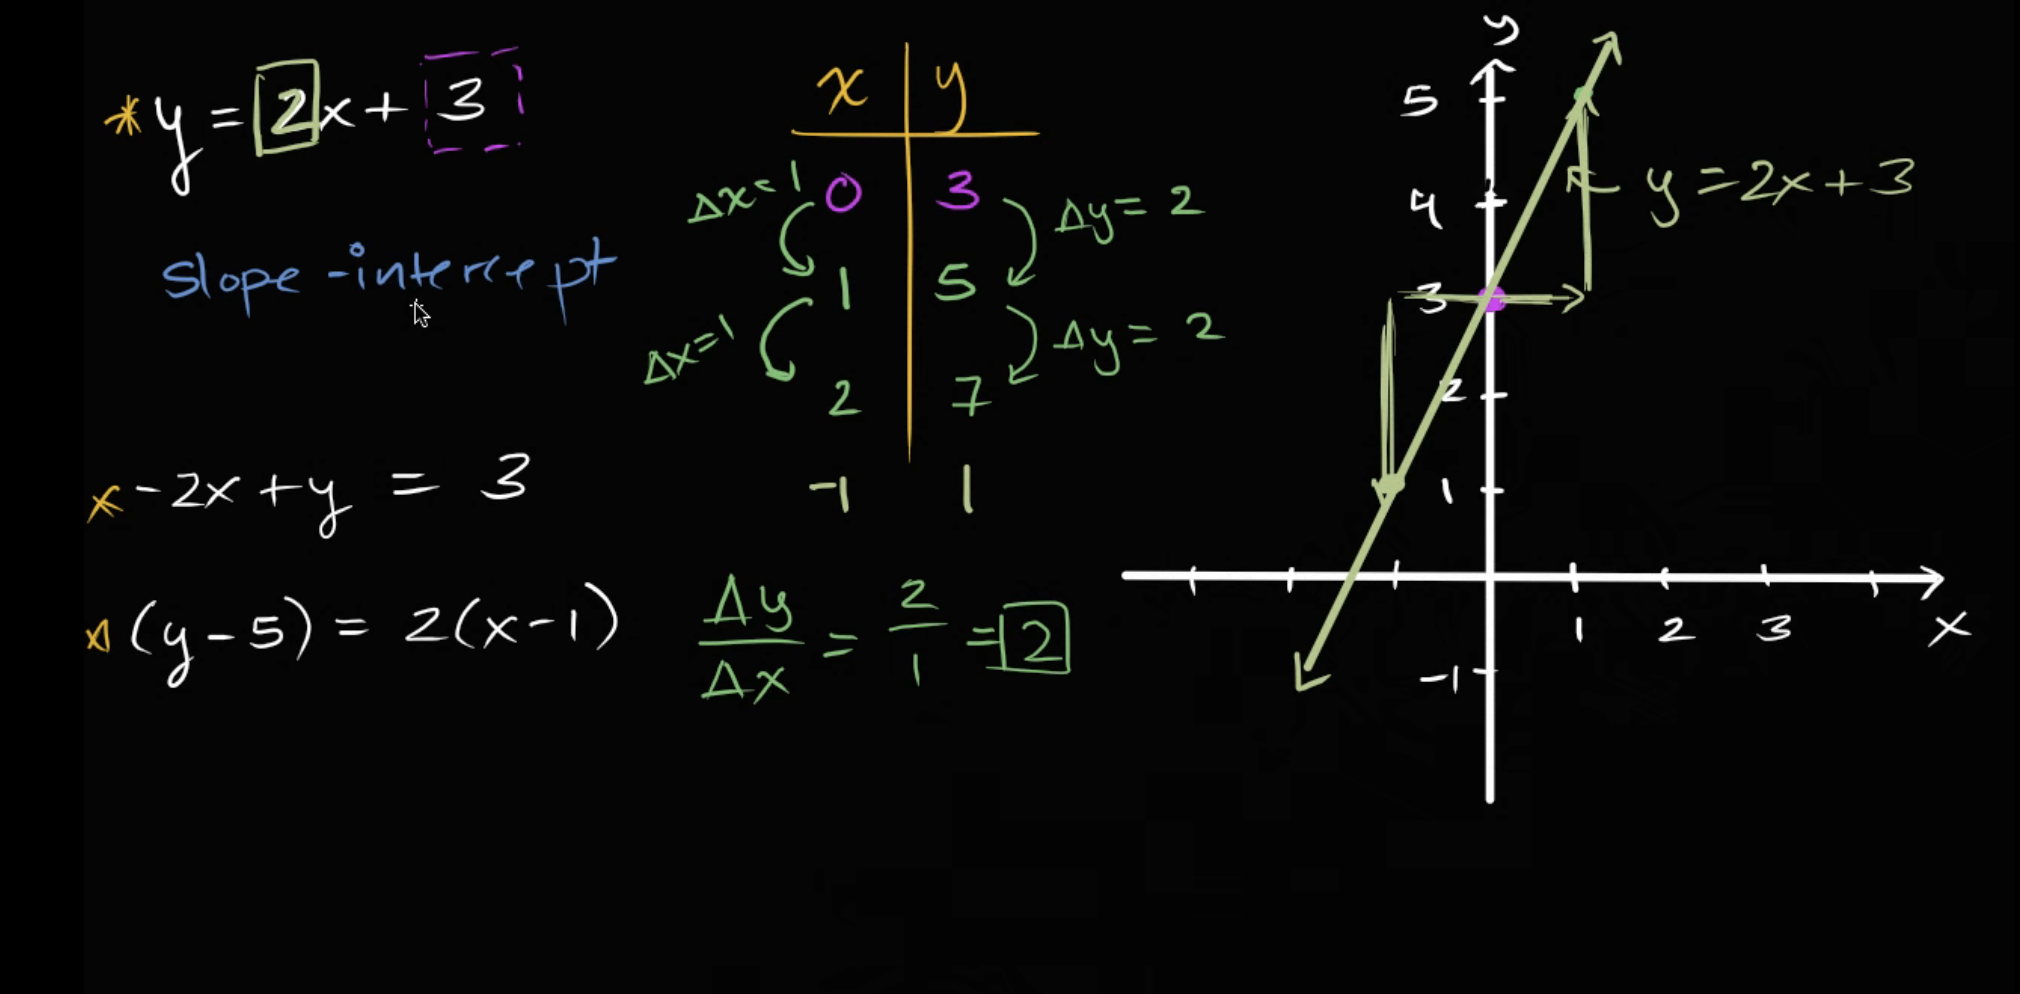 * y = 2x + 3
slope-intercept
* -2x + y = 3
* (y - 5) = 2(x - 1)
x | y
0 | 3
1 | 5
2 | 7
-1 1
Δx = 1
Δy = 2
Δx = 1
Δy = 2
Δy/Δx = 2/1 = 2
y
5
4
3
2
1
-1
1 2 3 x
y = 2x + 3